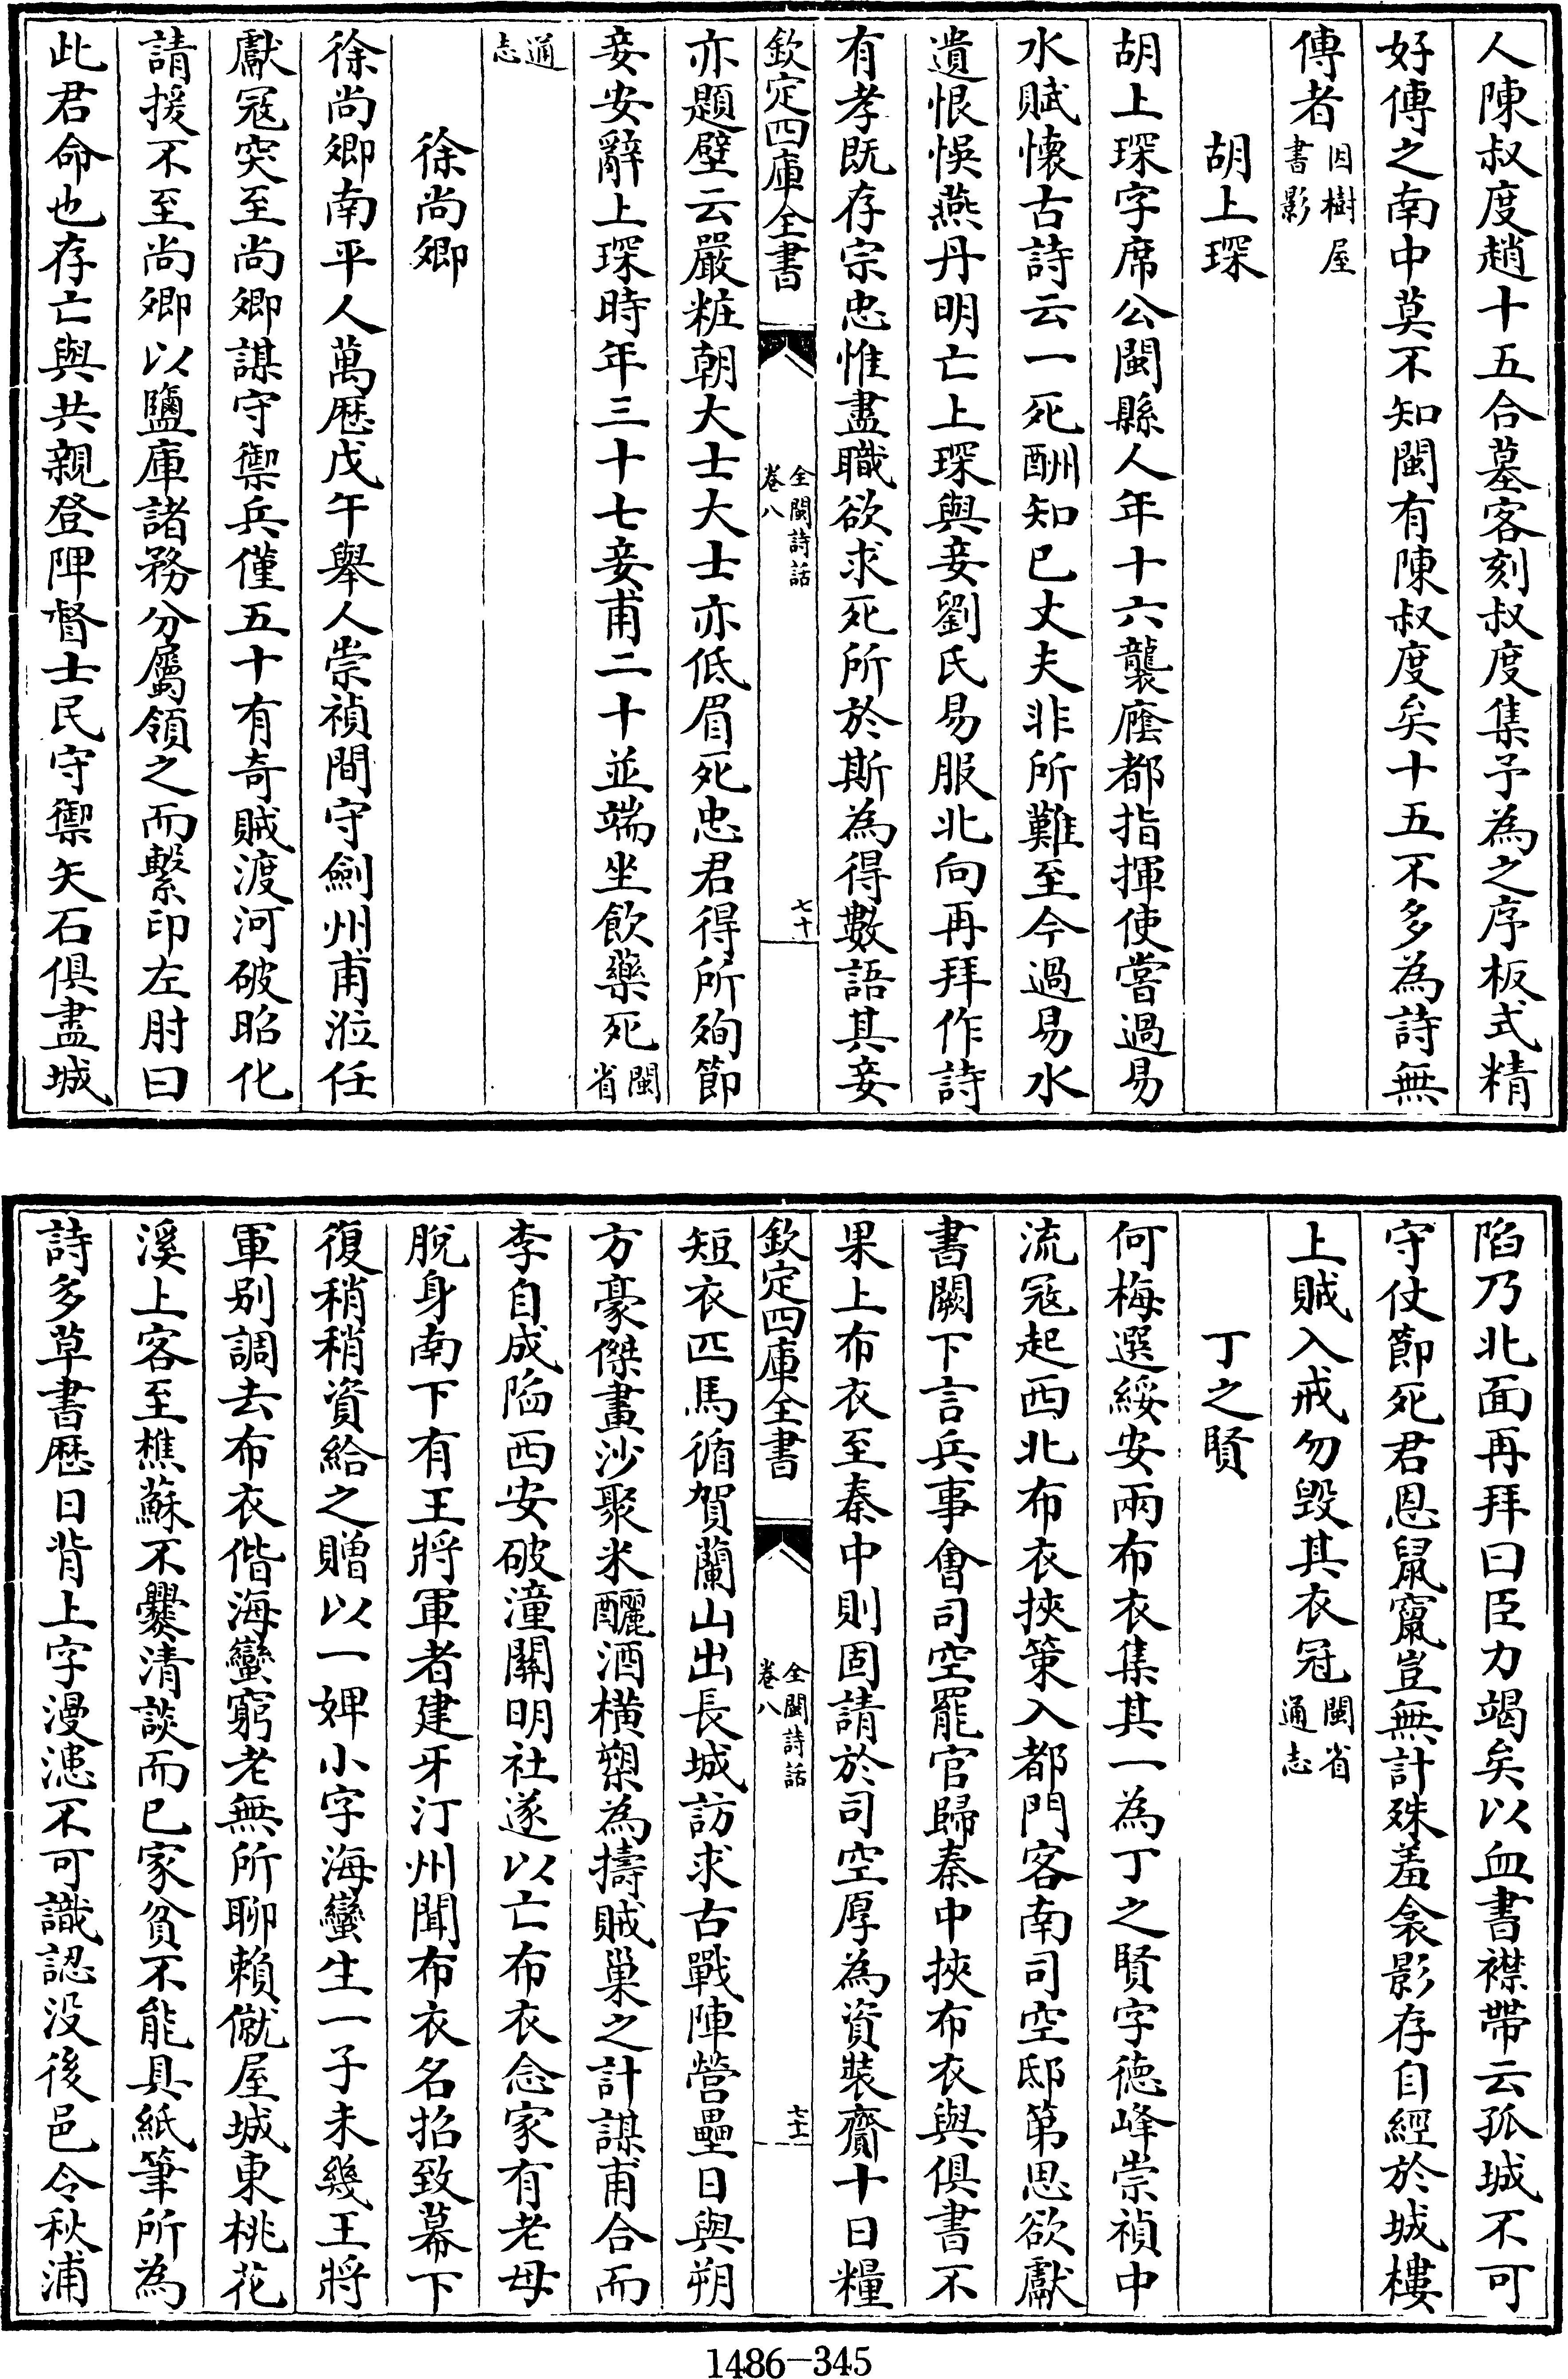 人陳叔度趙十五合墓客刻叔度集予為之序板式精
好傳之南中莫不知閩有陳叔度矣十五不多為詩無
傳者因樹屋書影
胡上琛
胡上琛字席公閩縣人年十六襲廕都指揮使嘗過易
水賦懷古詩云一死酬知已丈夫非所難至今過易水
遺恨悞燕丹明亡上琛與妾劉氏易服北向再拜作詩
有孝既存宗忠惟盡職欲求死所於斯為得數語其妾
欽定四庫全書
全閩詩話
卷八
七十
亦題壁云嚴粧朝大士大士亦低眉死忠君得所殉節
妾安辭上琛時年三十七妾甫二十並端坐飲藥死閩省
通志
徐尚卿
徐尚卿南平人萬厯戊午舉人崇禎間守劍州甫涖任
獻寇突至尚卿謀守禦兵僅五十有奇賊渡河破昭化
請援不至尚卿以鹽庫諸務分屬領之而繫印左肘曰
此君命也存亡與共親登陴督士民守禦矢石俱盡城
陷乃北面再拜曰臣力竭矣以血書襟帶云孤城不可
守仗節死君恩鼠竄豈無計殊羞衾影存自經於城樓
上賊入戒勿毁其衣冠閩省通志
丁之賢
何梅選綏安兩布衣集其一為丁之賢字德峰崇禎中
流寇起西北布衣挾策入都門客南司空邸第思欲獻
書闕下言兵事會司空罷官歸秦中挾布衣與俱書不
果上布衣至秦中則固請於司空厚為資裝齎十日糧
欽定四庫全書
全閩詩話
卷八
七十一
短衣匹馬循賀蘭山出長城訪求古戰陣營壘日與朔
方豪傑畫沙聚米釃酒橫槊為擣賊巢之計謀甫合而
李自成陷西安破潼關明社遂以亡布衣念家有老母
脫身南下有王將軍者建牙汀州聞布衣名招致幕下
復稍稍資給之贈以一婢小字海蠻生一子未幾王將
軍别調去布衣偕海蠻窮老無所聊賴僦屋城東桃花
溪上客至樵蘇不爨清談而已家貧不能具紙筆所為
詩多草書厯日背上字漫漶不可識認没後邑令秋浦
1486-345